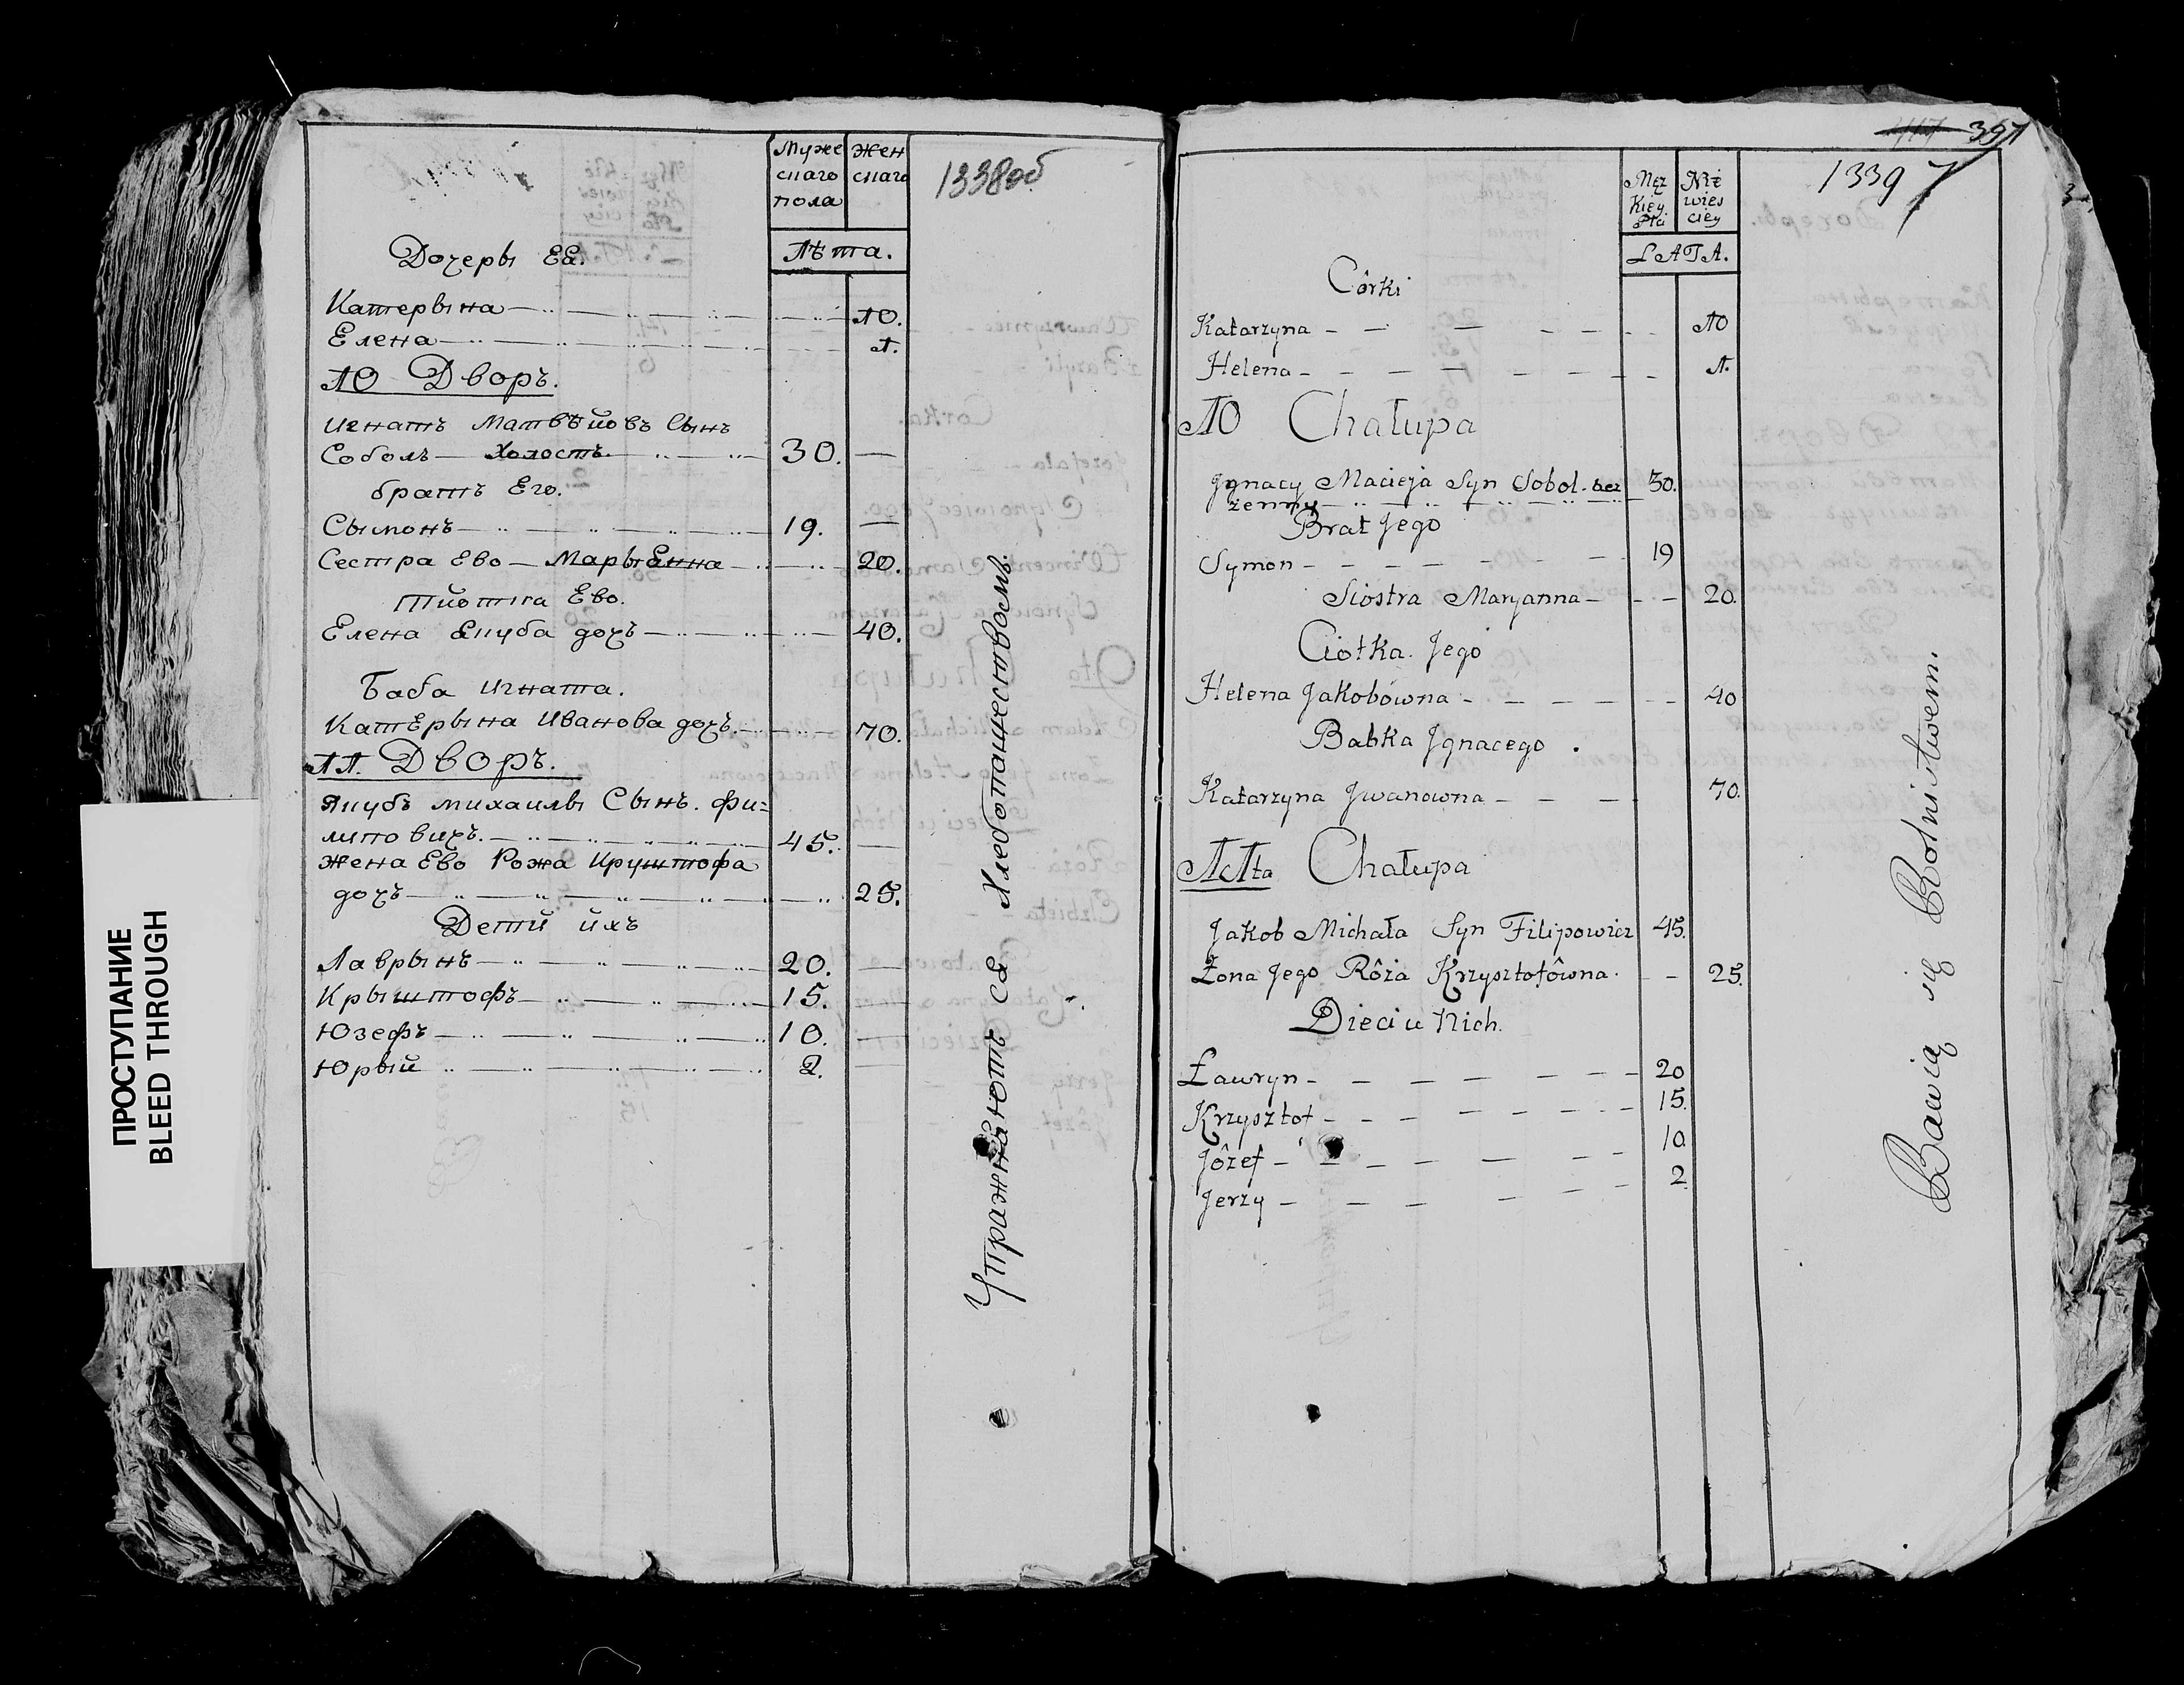 ПРОСТУПАНИЕ
BLEED THROUGH
Муже
скаго
пола
Жен
скаго
Лѣта.
1338об
Дочеры Её.
Катерына 10.
Елена 1.
10 Дворъ.
Игнатъ Матвѣйовъ Сынъ
Соболь Холостъ 30.
братъ Его.
Сымонъ 19.
Сестра Ево Марыянна 20.
Тйотка Ево.
Елена Якуба дочъ 40.
Баба Игната.
Катѣрына Иванова дочъ. 70.
11. Дворъ.
Якубъ Михаилы Сынъ. Фи=
липовичъ. 45.
Жена Ево Рожа Круштофа
дочъ 25.
Детй йхъ
Лаврынъ 20.
Крыштофъ 15.
Юзефъ 10.
Юрый 2.
Упражняютъ ся Хлебопашествомъ.
397
1339
Męz
kiey
Płci
Nie
wies
ciey
LATA.
Côrki
Katarzyna 10
Helena 1.
10 Chałupa
Jgnacy Macieja Syn Sobol. bez 30.
żenny
Brat Jego
Symon 19
Siostra Maryanna 20.
Ciotka Jego
Helena Jakobówna 40
Babka Jgnacego.
Katarzyna Jwanowna 70.
11ta Chałupa
Jakob Michała Syn Filipowicz 45.
Żona Jego Rôża Krzysztofôwna. 25.
Dzieci u Nich.
Ławryn 20
Krzysztof 15.
Jôzef 10
Jerzy 2
Bawią się Rolnistwem.